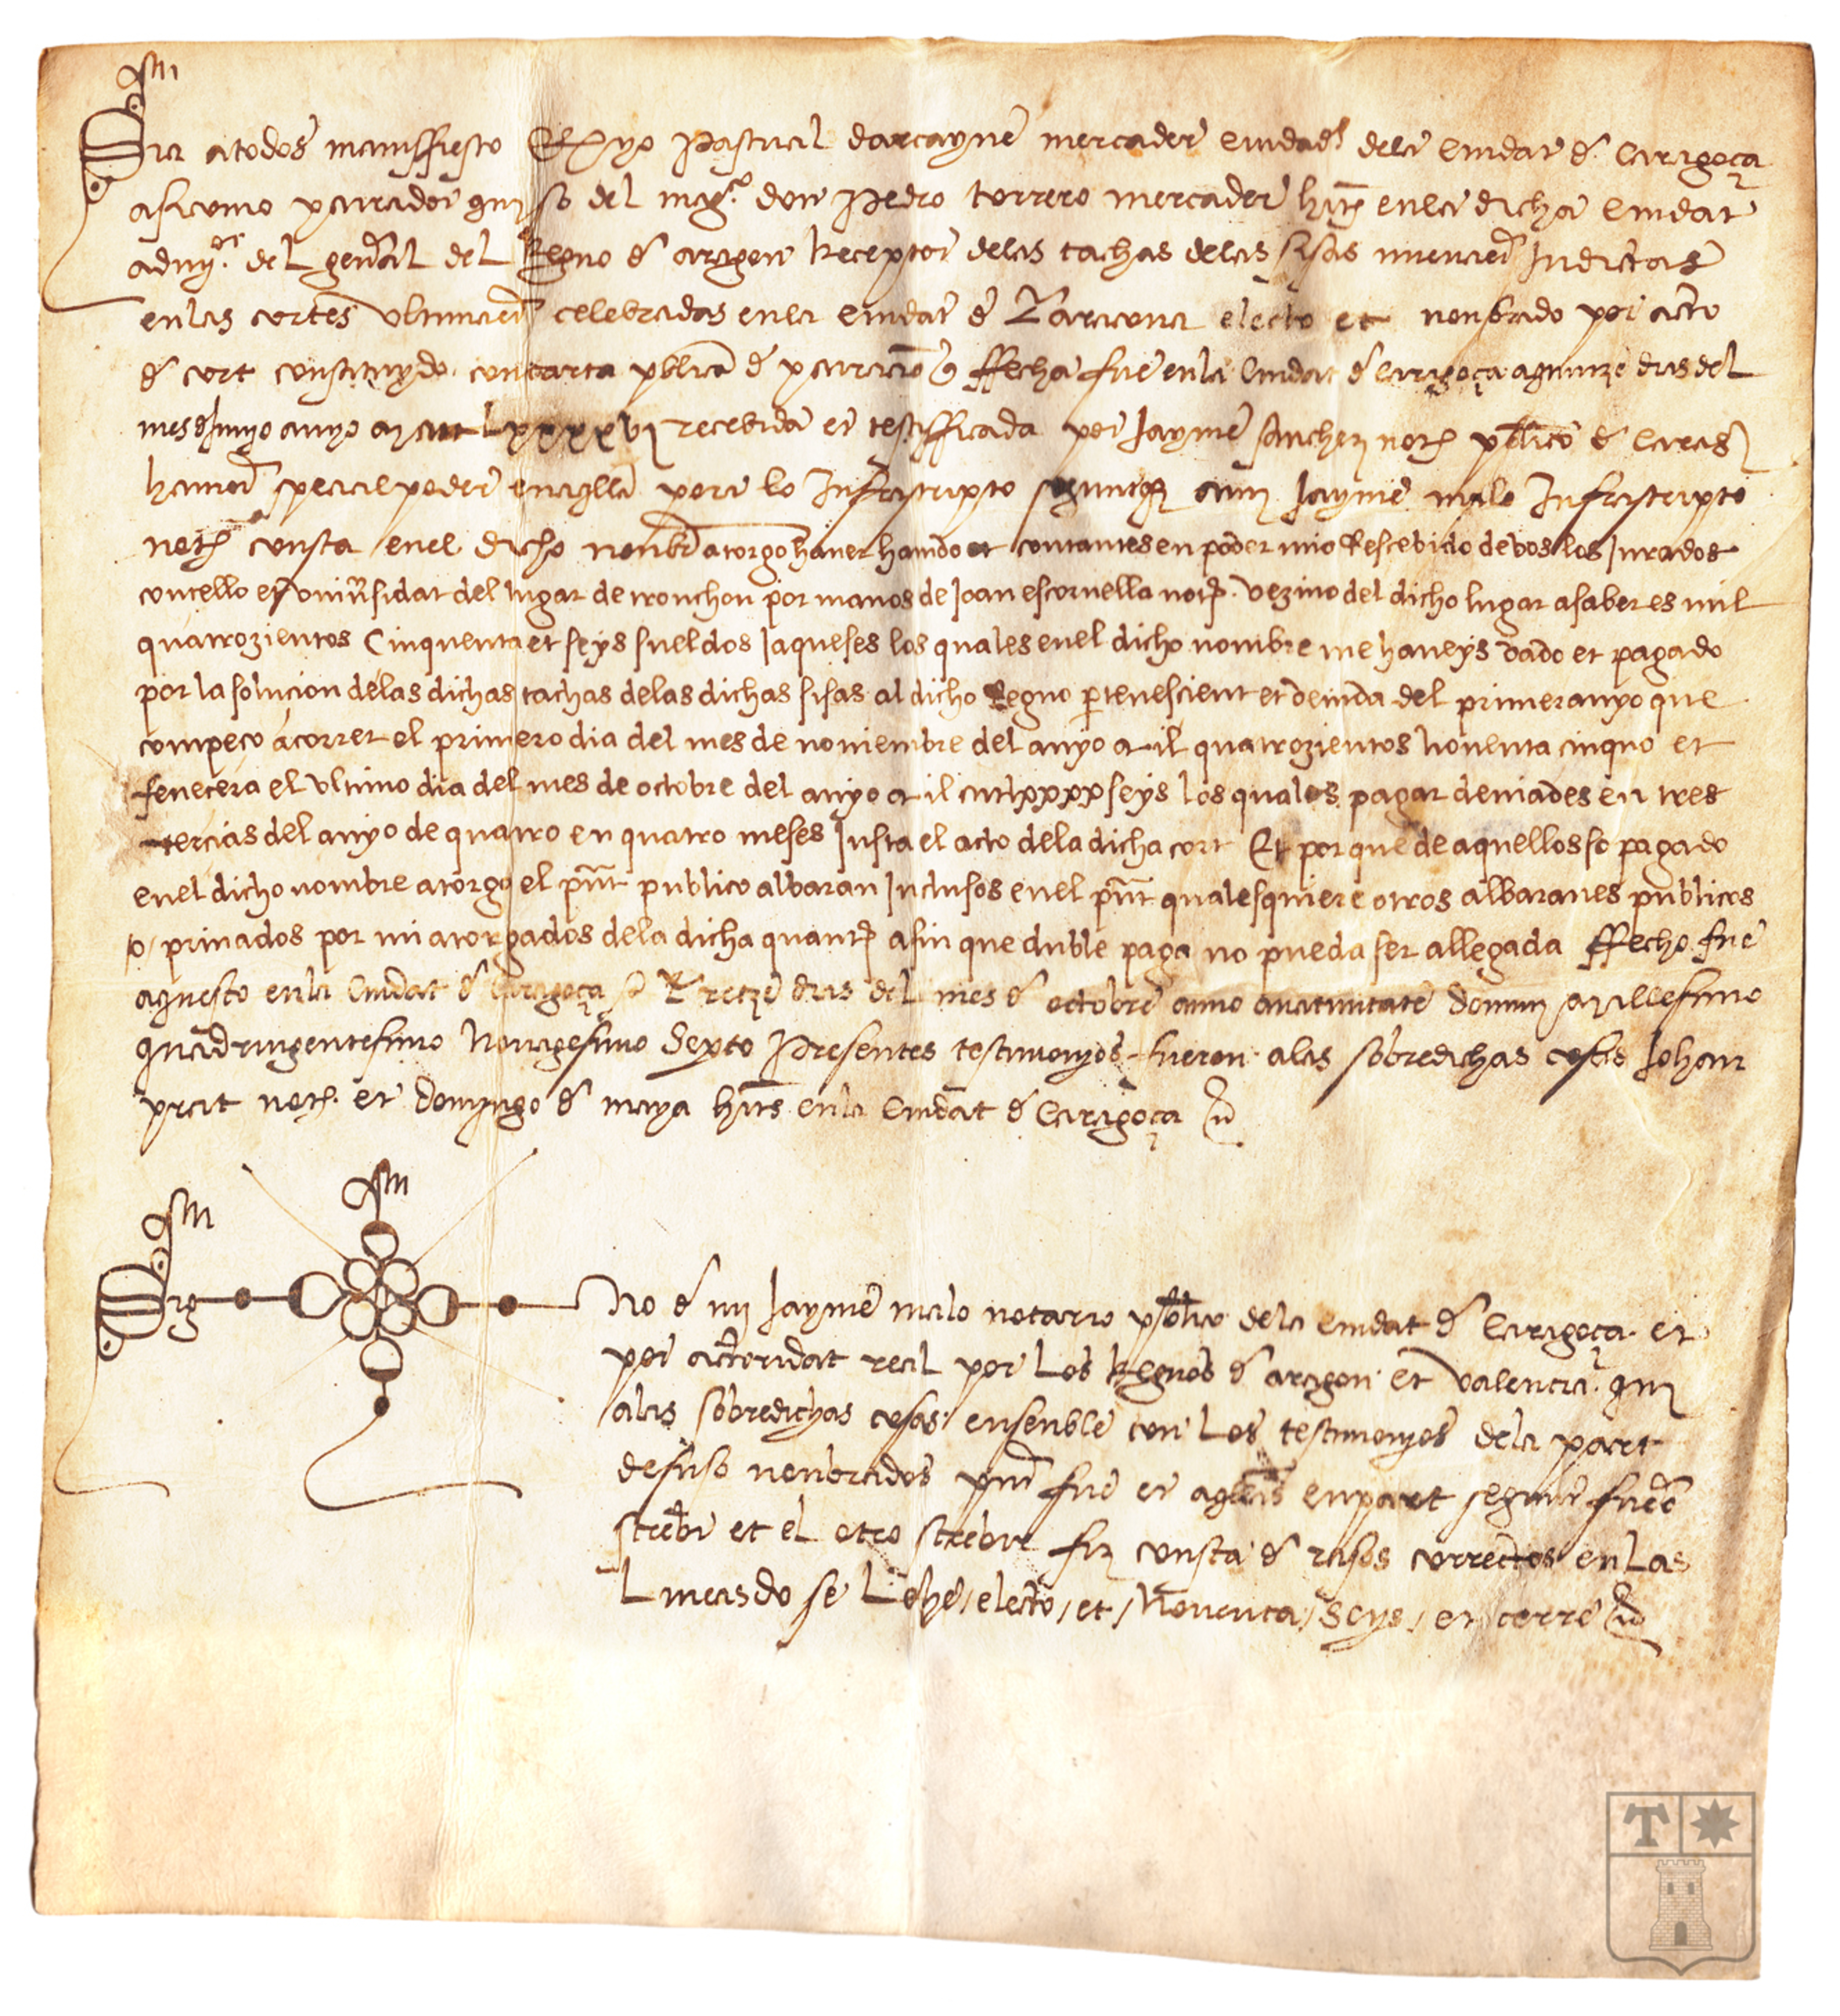 Jhs
Sia a todos manifiesto Que yo Pascual darcayne mercader ciudadno dela ciudat de Caragoça
asi como procurador qui so del magco don Pedro torrero mercader habitant en la dicha ciudat
admdor del general del Regno de aragon Receptor delas tachas delas sisas nuevament Indictas
en las cortes ultimament celebradas en la ciudat de Taraçona electo et nonbrado por acto
de cort constituydo con carta publica de procuracion que ffecha fue en la Ciudat de Caragoça a quinze dias del
mes de Junyo anyo M cccc Lxxxxvi recebida et testifficada por Jayme sanchez notario publico de Carag
havient special poder en aquella pora lo Infrascripto segunt que a mi Jayme malo Infrascripto
notario consta en el dicho nonbre atorgo haver havido et contantes en poder mio Rescebido de vos los Jurados
concello et universidat del lugar de tronchon por manos de Joan escornella notº. vezino del dicho lugar a saber es mil
quatrozientos Cinquenta et seys sueldos Jaqueses los quales en el dicho nombre me haveys dado et pagado
por la solucion delas dichas tachas delas dichas sisas al dicho Regno pertenescient et devida del primer anyo que
compeço a correr el primero dia del mes de noviembre del anyo Mil quatrozientos noventa cinquo et
fenecera el ultimo dia del mes de octobre del anyo Mil ccccLxxxx seys los quales pagar deviades en tres
tercias del anyo de quatro en quatro meses Justa el acto dela dicha cort Et porque de aquellos so pagado
en el dicho nombre atorgo el pnt publico albaran Inclusos en el pnt qualesquiere otros albaranes publicos
o / privados por mi atorgados dela dicha quantª afin que duble paga no pueda ser allegada ffecho fue
aquesto en la Ciudat de Caragoça a Tretze dias del mes de octobre anno anativitate domini Millesimo
quadringentesimo Nonagesimo Sexto Presentes testimonyos fueron alas sobredichas cosas Johan
prat notº. et domingo de maya habitantes en la Ciudat de Caragoça
Jhs
Jhs
Sig no de mi Jayme malo notario publico dela ciudat de Caragoça et
por actoridat real por Los Regnos de aragon et valencia qui
alas sobredichas cosas ensenble con Los testimonyos dela part
desuso nonbrados present fue et aquellas en part segunt fuero
screbi et el otro screbir fiz consta de rasos correctos en Las
Lineas do se Lehe / electo / et / Noventa / Seys / et cerre
T